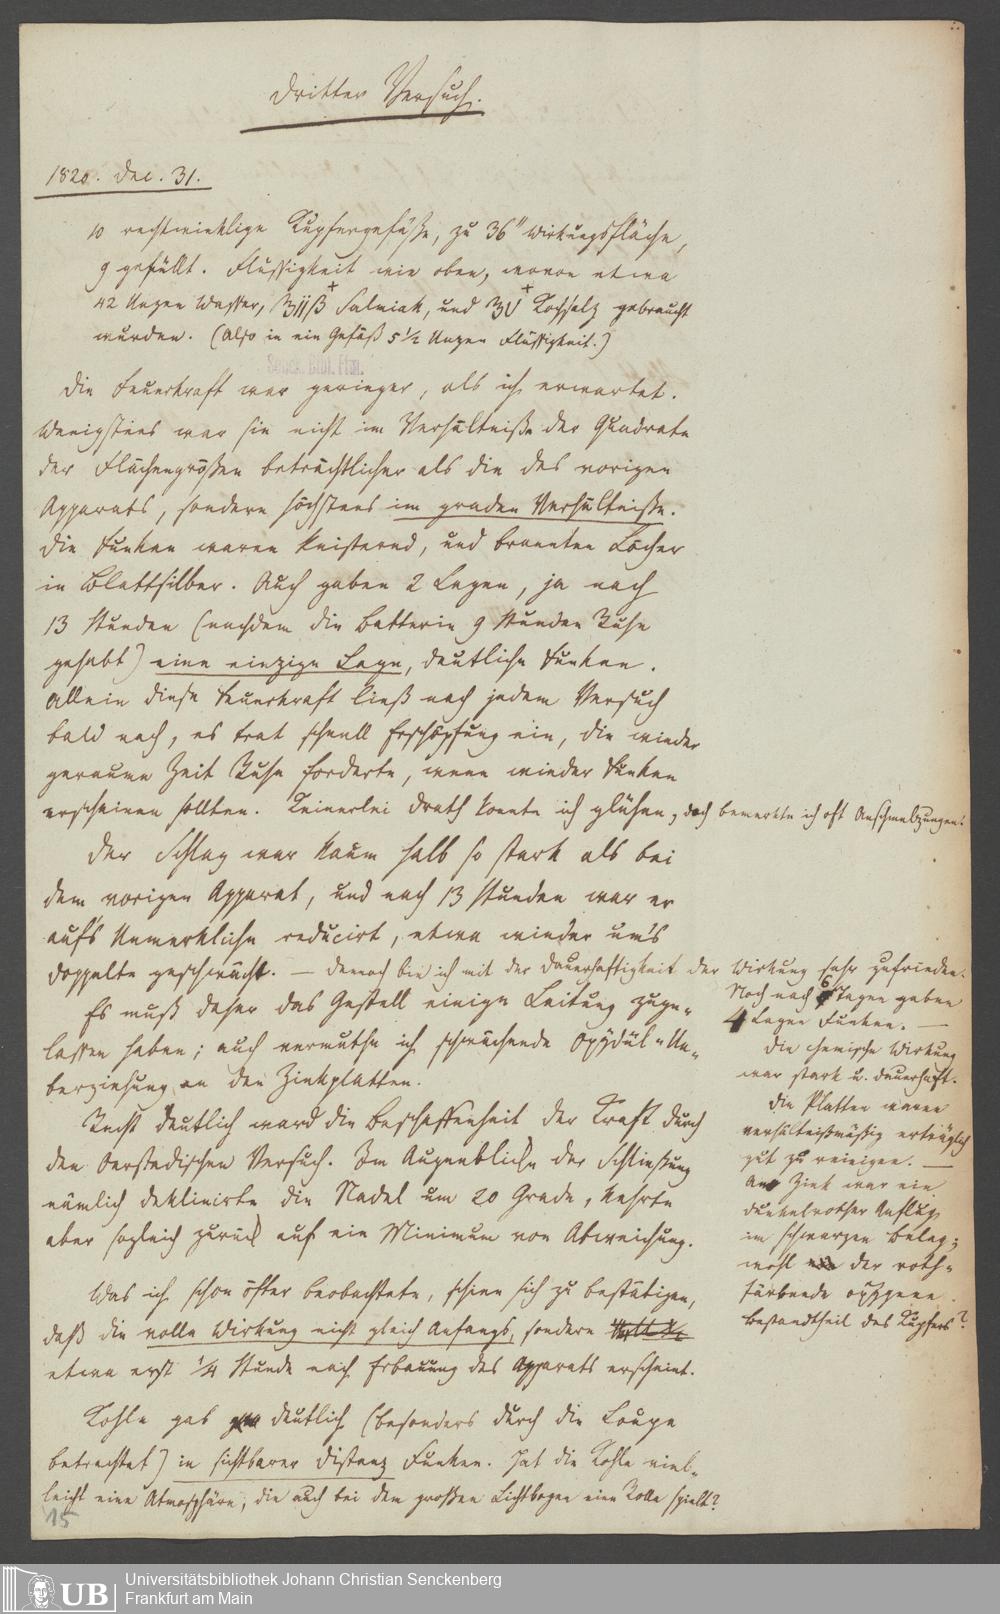 Dritter Versuch.
1820. Dec. 31.
10 rechtwinklige Kupfergefäße, zu 36" Wirkungsfläche,
9 gefüllt. Flüssigkeit wie oben, wovon etwa
42 Unzen Wasser, ʒijß + Salmiak, und ʒv + Kochsalz gebraucht
wurden. (Also in ein Gefäß 5 1/2 Unzen Flüssigkeit.)
Senck. Bibl. Ffm.
Die Feuerkraft war geringer, als ich erwartet.
Wenigstens war sie nicht im Verhältnisse der Quadrate
der Flächengrößen beträchtlicher als die des vorigen
Apparats, sondern höchstens im graden Verhältnisse.
Die Funken waren knisternd, und brannten Löcher
in Blattsilber. Auch gaben 2 Lagen, ja nach
13 Stunden (nachdem die Batterie 9 Stunden Ruhe
gehabt) eine einzige Lage, deutliche Funken.
Allein diese Feuerkraft ließ nach jedem Versuch
bald nach, es trat schnell Erschöpfung ein, die wieder
geraume Zeit Ruhe forderte, wenn wieder Funken
erscheinen sollten. Keinerlei Drath konnte ich glühen, doch bemerkte ich oft Anschmelzungen.
Der Schlag war kaum halb so stark als bei
dem vorigen Apparat, und nach 13 Stunden war er
aufs Unmerkliche reducirt, etwa wieder um's
doppelte geschwächt. — Dennoch bin ich mit der Dauerhaftigkeit der Wirkung sehr zufrieden.
Noch nach 6 Tagen gaben
4 Lagen Funken. —
Die chemische Wirkung
war stark u. dauerhaft.
Die Platten waren
verhältnißmäßig erträglich
gut zu reinigen. —
Am Zink war ein
dunkelrother Anflug
im schwarzen Beleg;
wohl der roth-
färbende oxygene
Bestandtheil des Kupfers?
Es muß daher das Gestell einige Leitung zuge-
lassen haben; auch vermuthe ich schwächende Oxydül-Ue-
berziehung an den Zinkplatten.
Recht deutlich ward die Beschaffenheit der Kraft durch
den Oerstedischen Versuch. Im Augenblicke der Schließung
nämlich deklinirte die Nadel um 20 Grade, kehrte
aber sogleich zurück auf ein Minimum von Abweichung.
Was ich schon öfter beobachtete, schien sich zu bestätigen,
daß die volle Wirkung nicht gleich Anfangs, sondern
etwa erst 1/4 Stunde nach Erbauung des Apparats erscheint.
Kohle gab deutlich (besonders durch die Loupe
betrachtet) in sichtbarer Distanz Funken. Hat die Kohle viel-
leicht eine Atmosphäre, die auch bei dem großen Lichtbogen eine Rolle spielt?
15
UB
Universitätsbibliothek Johann Christian Senckenberg
Frankfurt am Main